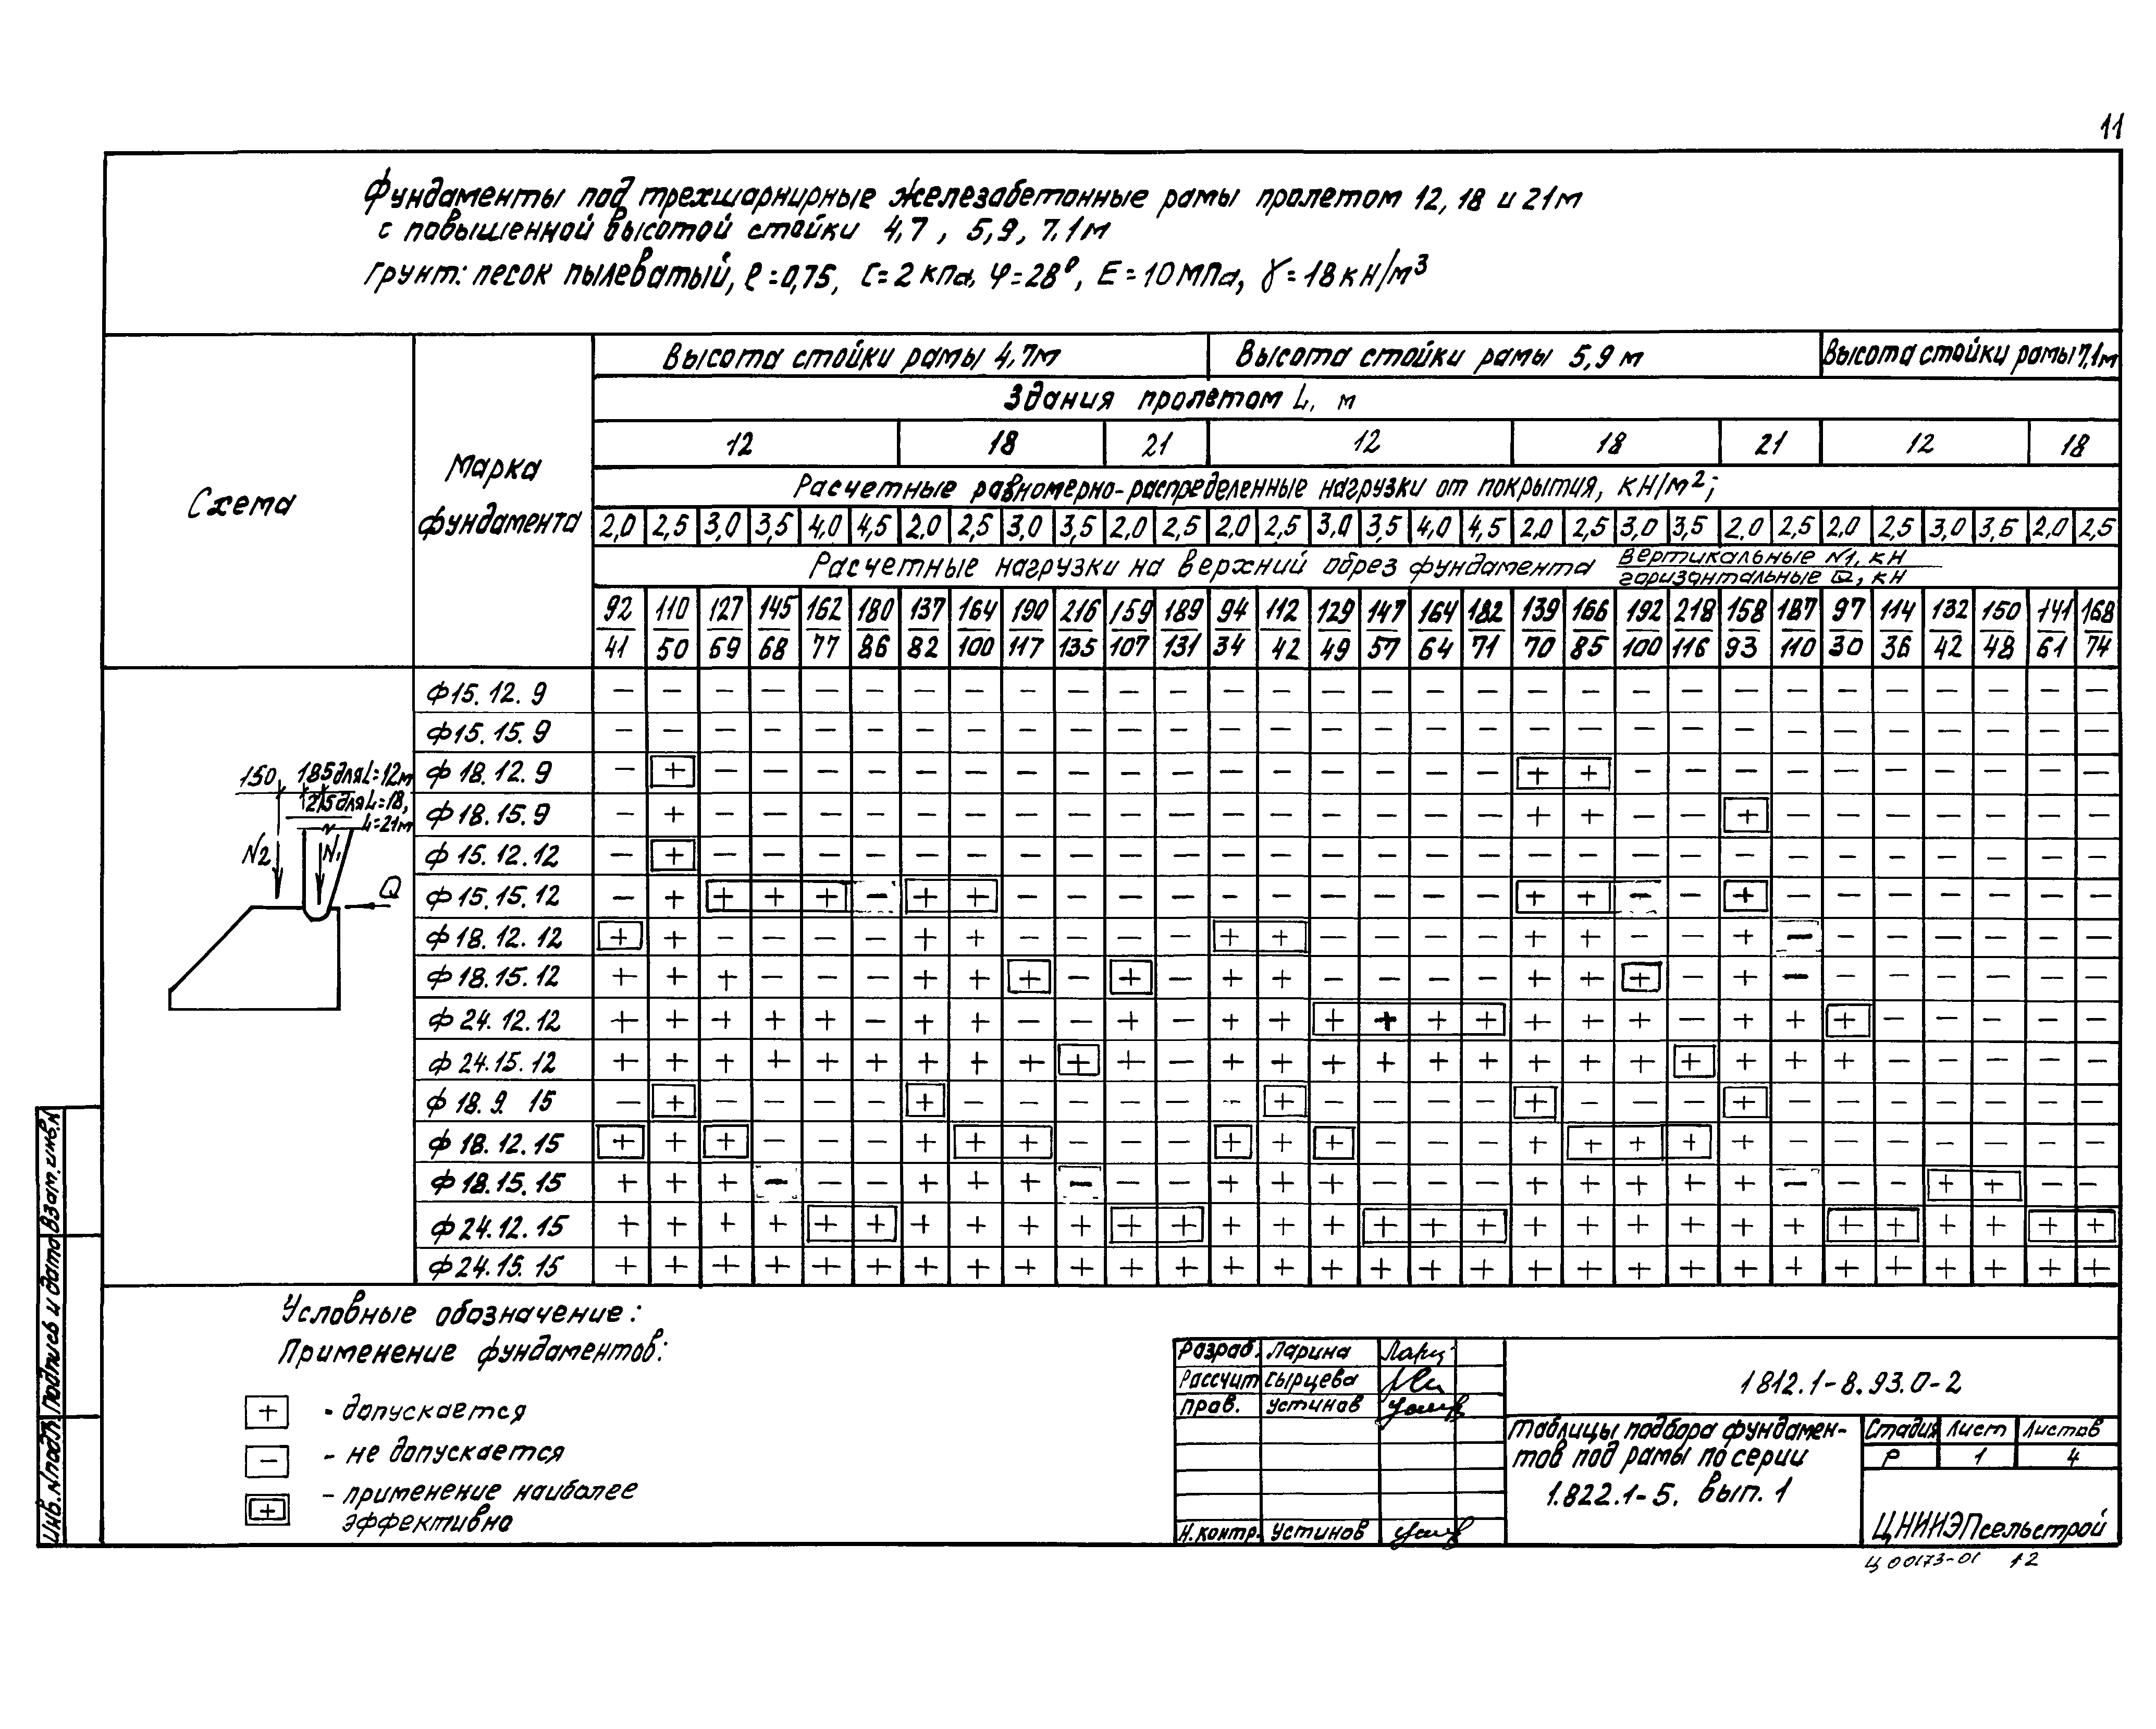 11
Фундаменты под трехшарнирные железобетонные рамы пролетом 12, 18 и 21м
с повышенной высотой стойки 4,7, 5,9, 7.1м
грунт: песок пылеватый, e=0,75, C=2 кпа, φ=28°, E=10МПа, γ=18кН/м³
Схема
Марка
фундамента
Высота стойки рамы 4,7м
Высота стойки рамы 5,9 м
Высота стойки рамы 7,1м
Здания пролетом L, м
12 18 21 12 18 21 12 18
Расчетные равномерно-распределенные нагрузки от покрытия, кН/м²;
2,0 2,5 3,0 3,5 4,0 4,5 2,0 2,5 3,0 3,5 2,0 2,5 2,0 2,5 3,0 3,5 4,0 4,5 2,0 2,5 3,0 3,5 2,0 2,5 2,0 2,5 3,0 3,5 2,0 2,5
Расчетные нагрузки на верхний обрез фундамента
вертикальные N1, кН
горизонтальные Q, кН
92 110 127 145 162 180 137 164 190 216 159 189 94 112 129 147 164 182 139 166 192 218 158 187 97 114 132 150 141 168
41 50 59 68 77 86 82 100 117 135 107 131 34 42 49 57 64 71 70 85 100 116 93 110 30 36 42 48 61 74
ф15.12.9 − − − − − − − − − − − − − − − − − − − − − − − − − − − − − −
ф15.15.9 − − − − − − − − − − − − − − − − − − − − − − − − − − − − − −
ф 18.12.9 − + − − − − − − − − − − − − − − − − + + − − − − − − − − − −
ф 18.15.9 − + − − − − − − − − − − − − − − − − + + − − + − − − − − − −
ф 15.12.12 − + − − − − − − − − − − − − − − − − − − − − − − − − − − − −
ф15.15.12 − + + + + − + + − − − − − − − − − − + + − − + − − − − − − −
ф18.12.12 + + − − − − + + − − − − + + − − − − + + − − + − − − − − − −
ф18.15.12 + + + − − − + + + − + − + + − − − − + + + − + − − − − − − −
ф 24.12.12 + + + + + − + + − − + − + + + + + + + + + − + + + − − − − −
ф 24.15.12 + + + + + + + + + + + − + + + + + + + + + + + + + − − − − −
ф 18.9. 15 − + − − − − + − − − − − − + − − − − + − − − + − − − − − − −
ф 18.12.15 + + + − − − + + + − − − + + + − − − + + + + + − − − − − − −
ф 18.15.15 + + + − − − + + + − − − + + + − − − + + + + + − − − + + − −
ф 24.12.15 + + + + + + + + + + + + + + + + + + + + + + + + + + + + + +
ф24.15.15 + + + + + + + + + + + + + + + + + + + + + + + + + + + + + +
150 185 для L=12м
215 для L=18,
L=21м
N2 N1 Q
Условные обозначение:
Применение фундаментов:
+ - допускается
− - не допускается
+ - применение наиболее
эффективно
Разраб. Ларина
Рассчит Сырцева
Пров. Устинов
Н.контр. Устинов
1812.1-8.93.0-2
Таблицы подбора фундамен-
тов под рамы по серии
1.822.1-5. вып. 1
Стадия Лист Листов
Р 1 4
ЦНИИЭПсельстрой
Ц00173-01 12
Инв.N подл. Подпись и дата Взам.инв.N